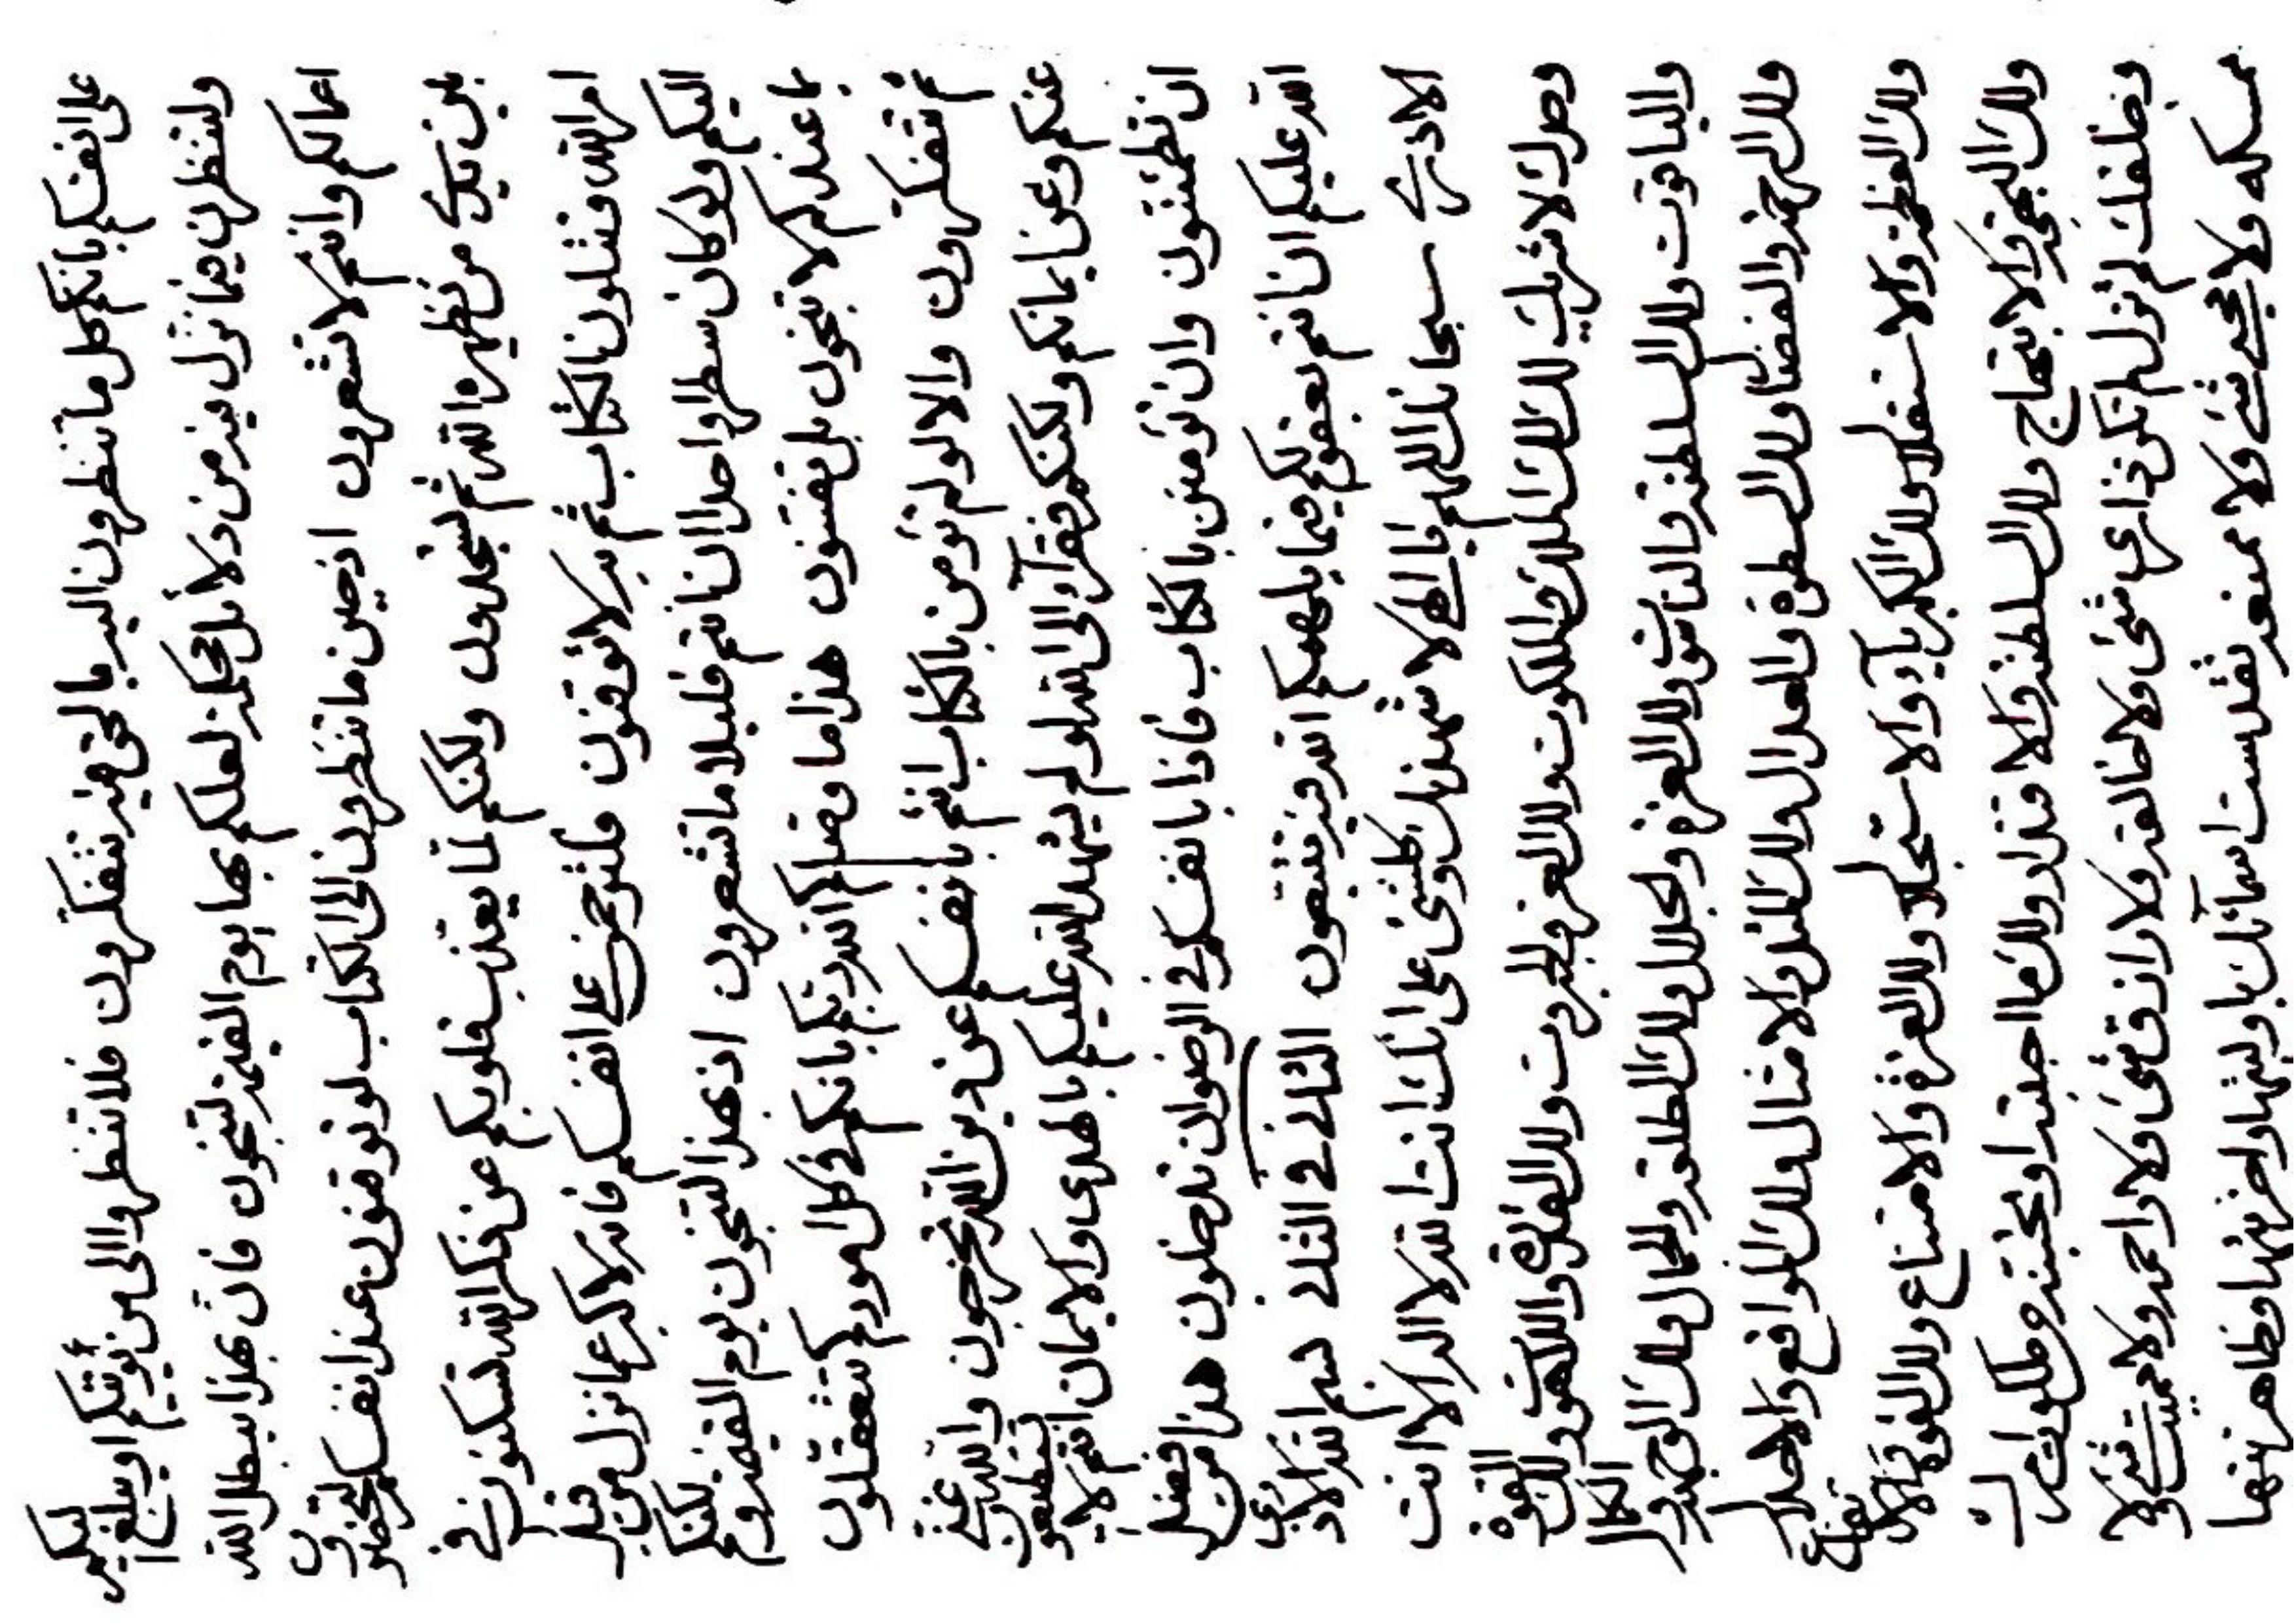 على انفسكم بانكم كل ما تنظرون اليه بالحق فيه تتفكرون فلا تنظروا الى من يؤتيكم او يبلغ اليكم
ولتنظرن فيما نزل فيه من دلائل محكمة لعلكم بها يوم القيمة لتنجون فان بهذا يبطل الله
اعمالكم وانتم لا تشعرون اذ حين ما تنظرون الى الكتاب لو توقنون عند انفسكم لتحضرون
بين يدي من يظهره الله ثم لتسجدون ولكنكم لما يعتذب قلوبكم عن ذكر الله تسكنون في
امر الله فتتلون الكتاب ثم به لا توقنون فلترحمن على انفسكم فانه لا اكبر عما نزل من قبل
اليكم ولو كان سطرا واحدا ان انتم قليلا ما تشعرون اذ بهذا لتنجون يوم القيمة ولكنكم
بما عندكم لا تنجون بل تفتنون هذا ما وصيكم الله ربكم بانكم في كل اموركم لتتعقلون
ثم تتفكرون والا لو لم تؤمنن بالكتاب انتم بانفسكم عن دين الله تخرجون والله غني
عنكم وعن ايمانكم ولكنكم فقرآء الى الله لو لم يمنن الله عليكم بالهدى والايمان انتم لا تستطيعون
ان تطمئنون وان تؤمنن بالكتاب فاذا بانفسكم في الرضوان تدخلون هذا من فضل
الله عليكم ان انتم بعقولكم فيما يلهمكم الله فيه تتبعون الثالث في الثالث بسم الله الاذرب
الاذرب سبحانك اللهم يا الهي لاشهدنك وكلشئ على انك انت الله لا اله الا انت
وحدك لا شريك لك لك الملك والملكوت ولك العز والجبروت ولك القدرة واللاهوت ولك القوة
والياقوت ولك السلطنة والناسوت ولك العزة والجلال ولك الطلعة والجمال ولك الوجهة والكمال
ولك الرحمة والفضال ولك السطوة والعدال ولك المثل والامثال ولك المواقع والاجلال
ولك العظمة والاستقلال ولك الكبرياء والاستجلال ولك العزة والامتناع ولك القوة والارتفاع
ولك البهجة والابتهاج ولك السلطنة والاقتدار ولك ما احببته او تحبه من ملكوت
وخلقك لم تزل لم تكن ذا عن شئ ولا خالقه ولا رازق شئ ولا واحده ولا مميت شئ ولا
ممسكه ولا محيي شئ ولا ممنعه تقدست اسمائك باوليتها واخريتها وظاهريتها